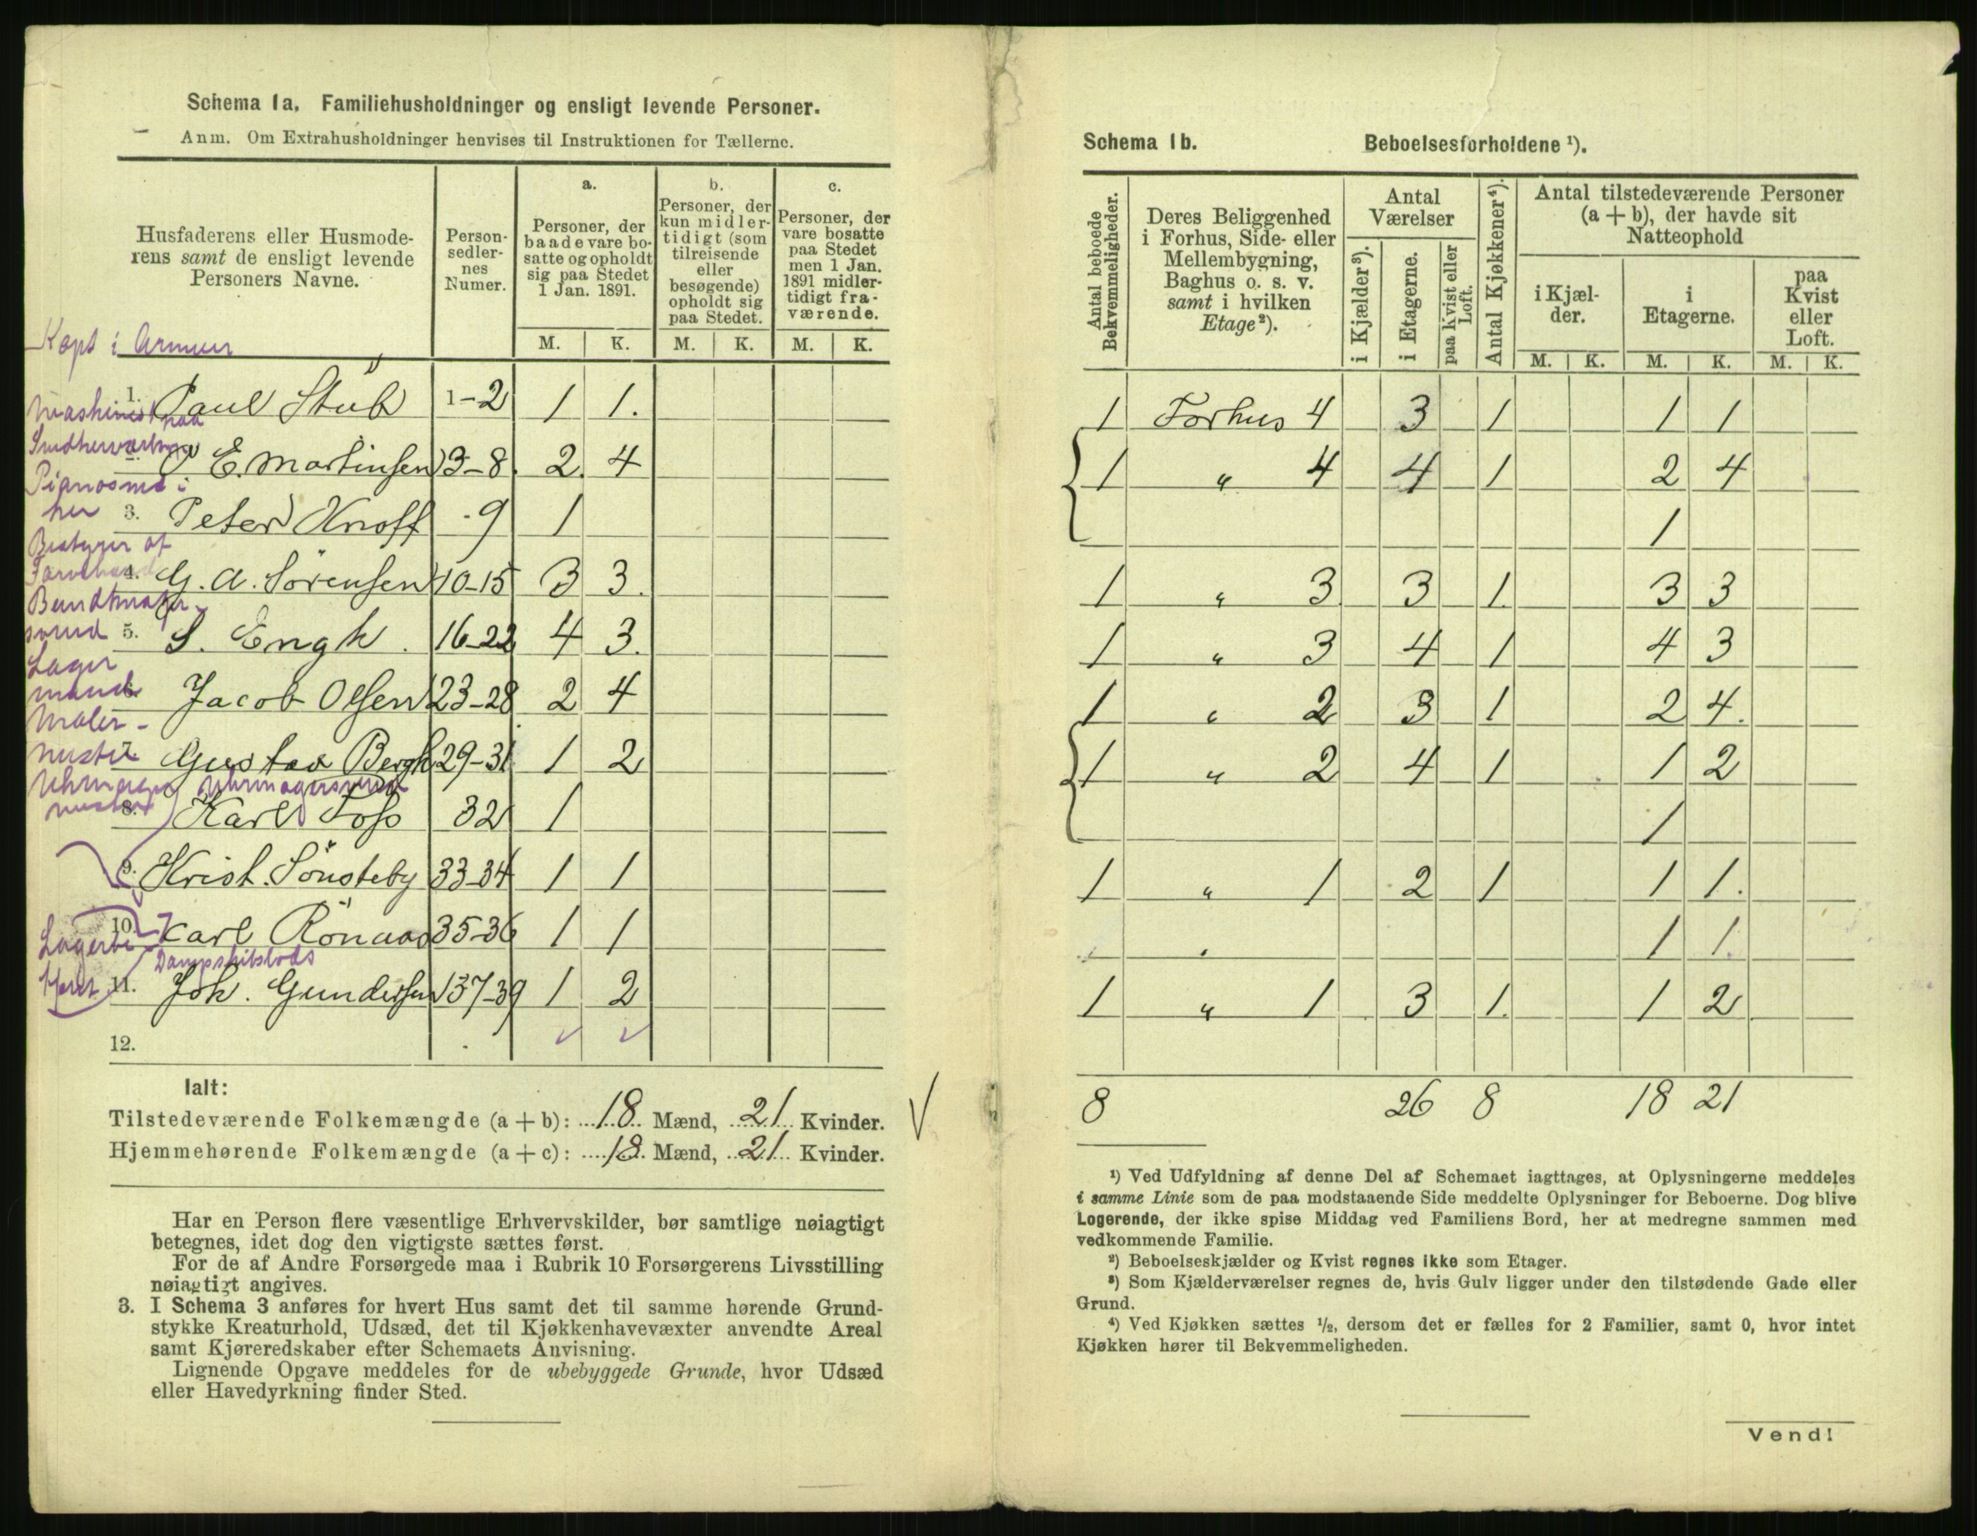 Schema 1a. Familiehusholdninger og ensligt levende Personer.
Anm. Om Extrahusholdninger henvises til Instruktionen for Tællerne.
Husfaderens eller Husmode-
rens samt de ensligt levende
Personers Navne.
Person-
sedler-
nes
Numer.
a.
Personer, der
baade vare bo-
satte og opholdt
sig paa Stedet
1 Jan. 1891.
b.
Personer, der
kun midler-
tidigt (som
tilreisende
eller
besøgende)
opholdt sig
paa Stedet.
c.
Personer, der
vare bosatte
paa Stedet
men 1 Jan.
1891 midler-
tidigt fra-
værende.
M. K. M. K. M. K.
Kapt i Armeen
1. Paul Stub 1-2 1 1.
Maskinist paa
2. E. Martinsen 3-8. 2. 4
Pianosmed i
her
3. Peter Knoff -9 1
Bestyrer af
4. G. A. Sörensen 10-15 3 3.
Bundtmager
svend
5. S. Engh. 16-22 4 3.
Lager
mand
Jacob Olsen 23-28 2 4
Maler-
mester
7. Gustav Bergh 29-31 1 2
Uhrmager
mester
Uhrmagersvend
8. Karl Foss 32 1
9. Krist. Sönsteby 33-34 1 1
10. Karl Rönaas 35-36 1 1
Dampskibslods
11. Joh. Gundersen 37-39 1 2
12.
Ialt:
Tilstedeværende Folkemængde (a + b): 18 Mænd, 21 Kvinder.
Hjemmehørende Folkemængde (a + c): 18 Mænd, 21 Kvinder.
Har en Person flere væsentlige Erhvervskilder, bør samtlige nøiagtigt
betegnes, idet dog den vigtigste sættes først.
For de af Andre Forsørgede maa i Rubrik 10 Forsørgerens Livsstilling
nøiagtigt angives.
3. I Schema 3 anføres for hvert Hus samt det til samme hørende Grund-
stykke Kreaturhold, Udsæd, det til Kjøkkenhavevæxter anvendte Areal
samt Kjøreredskaber efter Schemaets Anvisning.
Lignende Opgave meddeles for de ubebyggede Grunde, hvor Udsæd
eller Havedyrkning finder Sted.
Schema 1b. Beboelsesforholdene ¹).
Antal beboede
Bekvemmeligheder.
Deres Beliggenhed
i Forhus, Side- eller
Mellembygning,
Baghus o. s. v.
samt i hvilken
Etage²).
Antal
Værelser
i Kjælder³).
i Etagerne.
paa Kvist eller
Loft.
Antal Kjøkkener⁴).
Antal tilstedeværende Personer
(a + b), der havde sit
Natteophold
i Kjæl-
der.
i
Etagerne.
paa
Kvist
eller
Loft.
M. K. M. K. M. K.
1 Forhus 4 3 1 1 1
1 " 4 4 1 2 4
1
1 " 3 3 1. 3 3
1 " 3 4 1 4 3
1 " 2 3 1 2 4.
1 " 2 4 1 1 2
1
1 " 1 2 1 1 1.
1 1.
1 " 1 3 1. 1 2
8 26 8 18 21
¹) Ved Udfyldning af denne Del af Schemaet iagttages, at Oplysningerne meddeles
i samme Linie som de paa modstaaende Side meddelte Oplysninger for Beboerne. Dog blive
Logerende, der ikke spise Middag ved Familiens Bord, her at medregne sammen med
vedkommende Familie.
²) Beboelseskjælder og Kvist regnes ikke som Etager.
³) Som Kjælderværelser regnes de, hvis Gulv ligger under den tilstødende Gade eller
Grund.
⁴) Ved Kjøkken sættes ½, dersom det er fælles for 2 Familier, samt 0, hvor intet
Kjøkken hører til Bekvemmeligheden.
Vend!